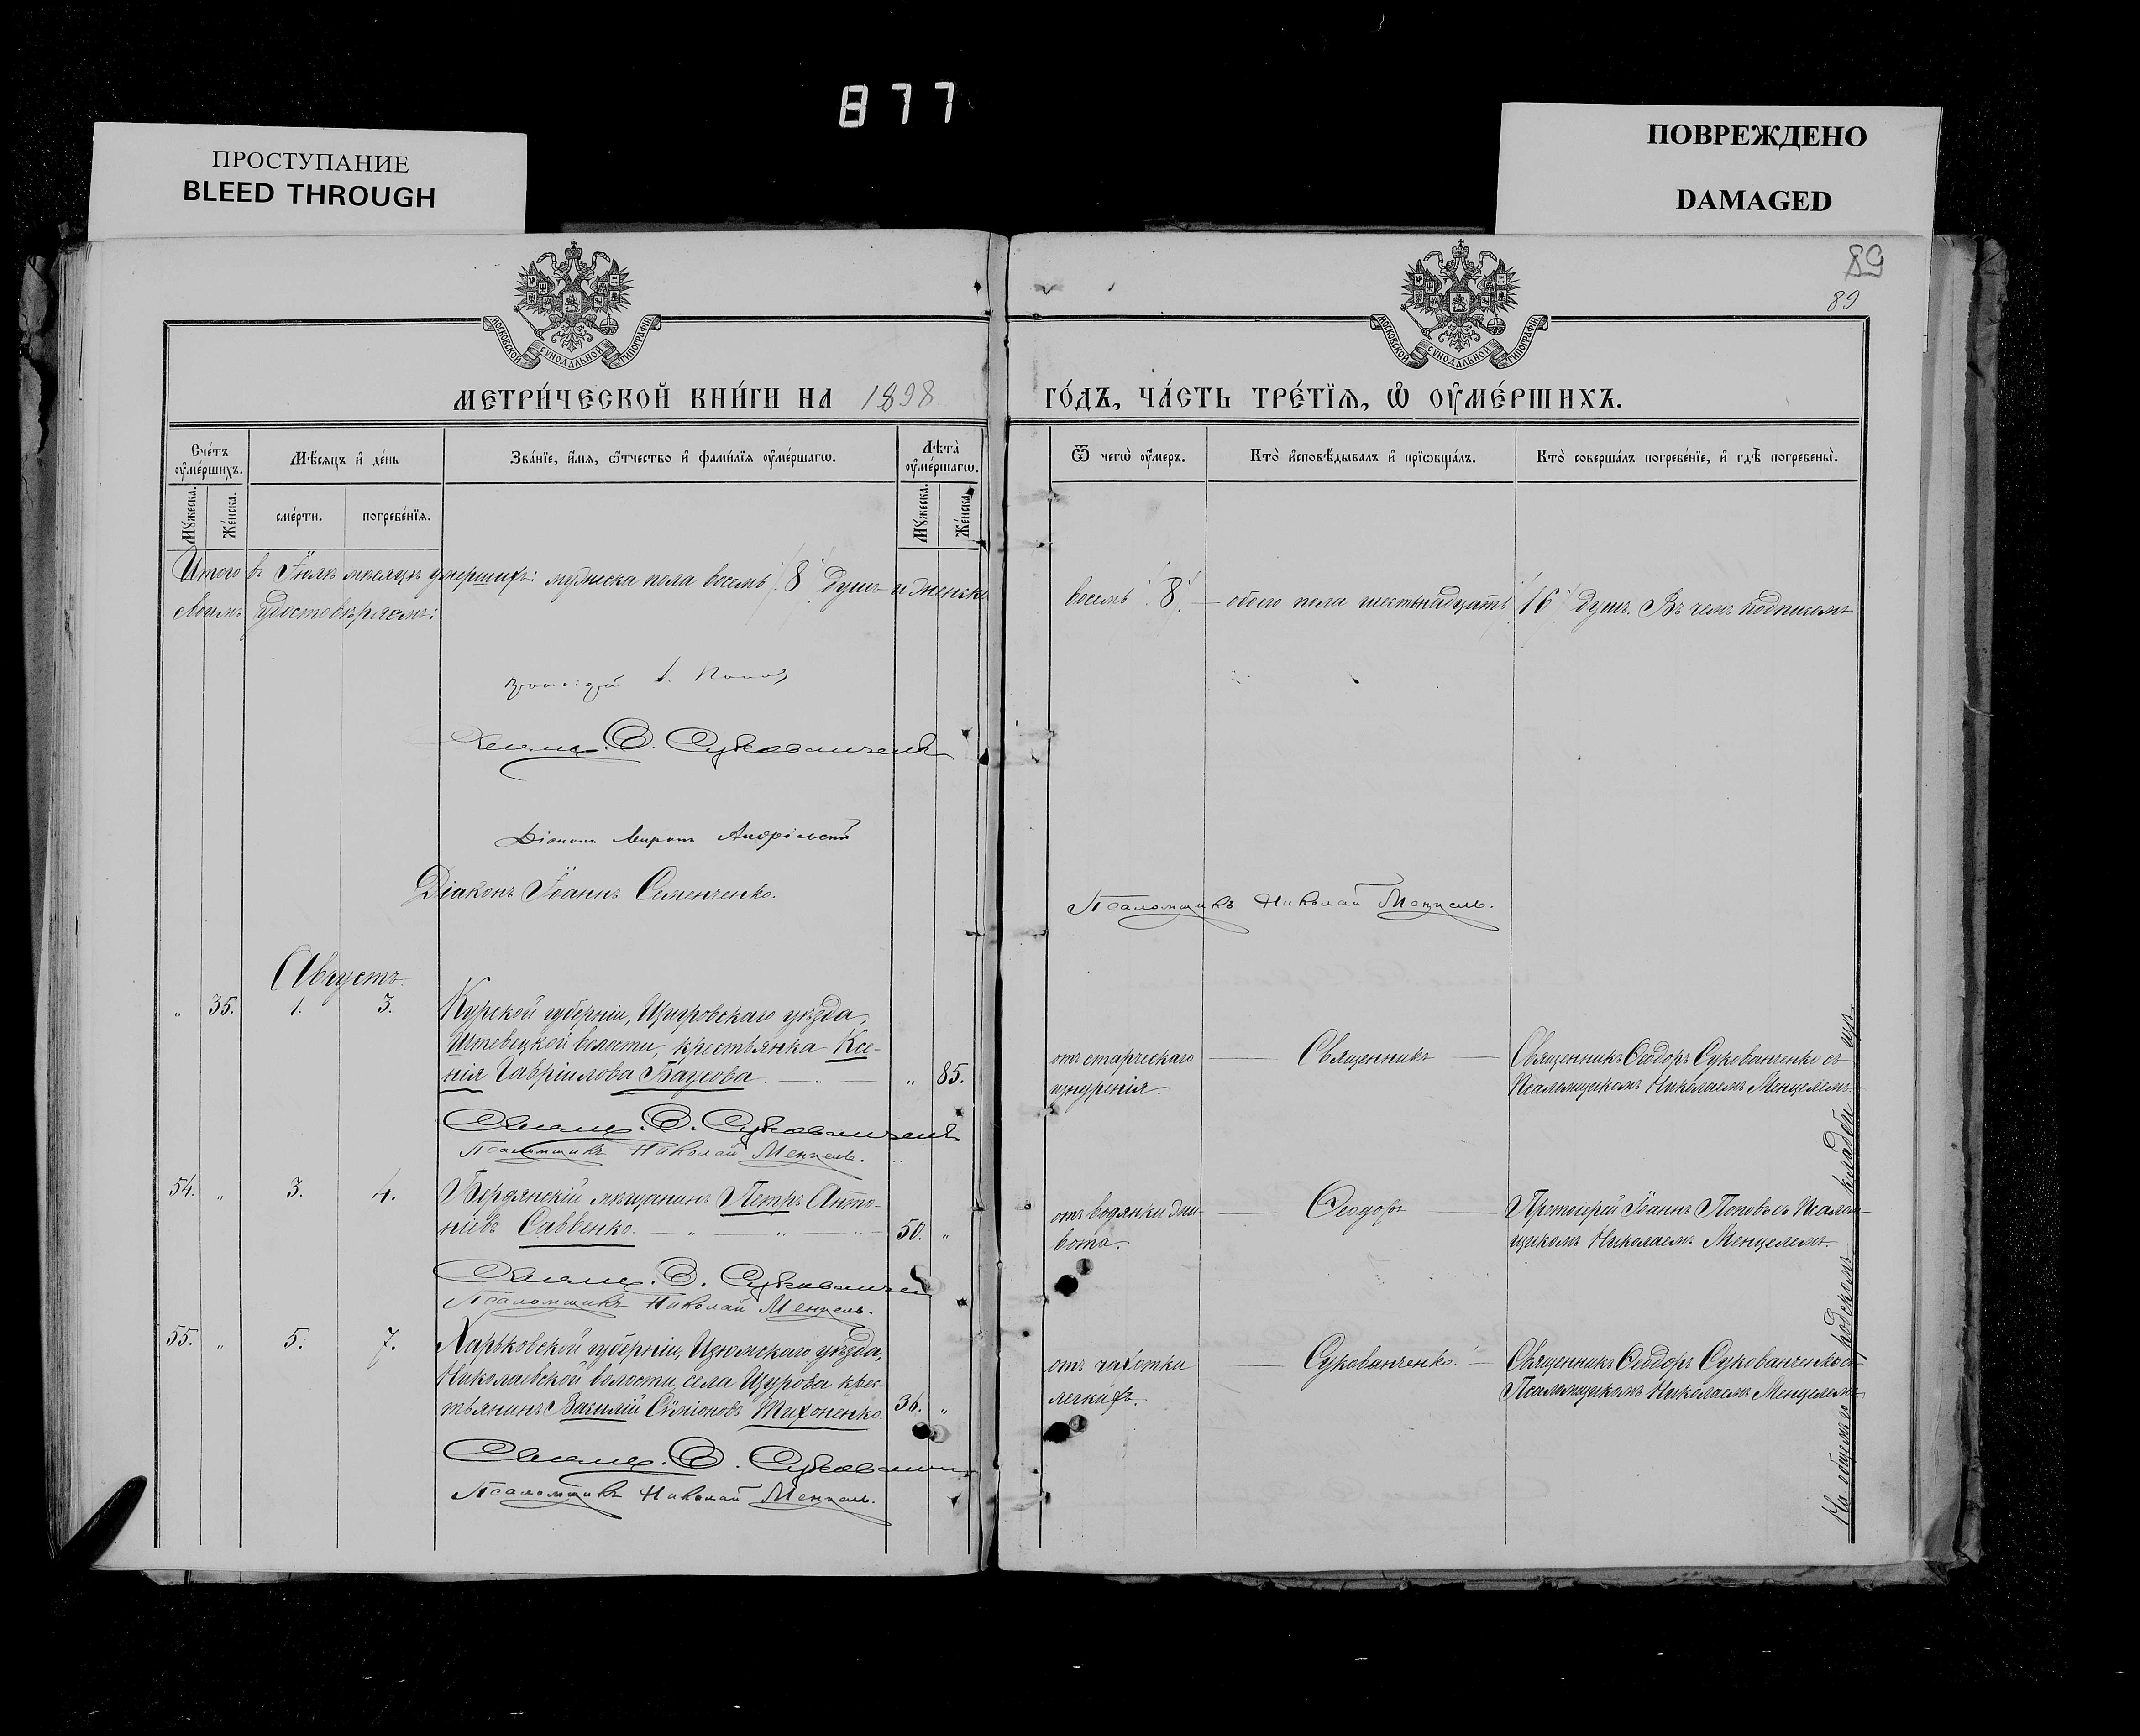 877
ПРОСТУПАНИЕ
BLEED THROUGH
ПОВРЕЖДЕНО
DAMAGED
89
89
МОСКОВСКОЙ СѴНОДАЛЬНОЙ ТИПОГРАФІИ
МОСКОВСКОЙ СѴНОДАЛЬНОЙ ТИПОГРАФІИ
МЕТРИ́ЧЕСКОЙ КНИ́ГИ НА 1898
ГО́ДЪ, ЧА́СТЬ ТРЕ́ТЇѦ, Ѡ҆ ОУ҆МЕ́РШИХЪ.
Сче́тъ оу҆ме́ршихъ.
Мѣ́сяцъ и҆ де́нь
Зва́нїе, и҆́мя, ѻ҆́тчество и҆ фами́лїя оу҆ме́ршагѡ.
Лѣ́та оу҆ме́ршагѡ.
Ѿ чегѡ̀ оу҆́меръ.
Кто̀ и҆сповѣ́дывалъ и҆ прїѡбща́лъ.
Кто̀ соверша́лъ погребе́нїе, и҆ гдѣ̀ погребены̀.
Мꙋ́жеска.
Же́нска.
сме́рти.
погребе́нїѧ.
Мꙋ́жеска.
Же́нска.
Итого въ Іюлѣ мѣсяцѣ умершихъ: мужеска пола восемь /8/ душъ и женска
восемь /8/. — обоего пола шестьнадцать /16/ душъ. Въ чемъ подписомъ
своимъ удостовѣряемъ:
Протоіерей І. Поповъ
Священ. Ѳ. Сукованченко
Діаконъ Миронъ
Діаконъ Іоаннъ Семенченко.
Псаломщикъ Николай Менцель.
Августъ.
„ 35. 1. 3. Курской губерніи, Щигровскаго уѣзда,
волости, крестьянка Ксе-
нія Гавріилова Баусова. — „ — „ 85.
отъ старческаго
изнуренія.
Священникъ
Священникъ Ѳеодоръ Сукованченко съ
Псаломщикомъ Николаемъ Менцелемъ
Священ. Ѳ. Сукованченко
Псаломщикъ Николай Менцель.
54. „ 3. 4. Бердянскій мѣщанинъ Петръ Анто-
ніевъ Саввенко. — „ — „ — „ — 50. „
отъ водянки жи-
вота.
Ѳеодоръ
Протоіерей Іоаннъ Поповъ съ Псалом-
щикомъ Николаемъ Менцелемъ.
Священ. Ѳ. Сукованчен
Псаломщикъ Николай Менцель.
55. „ 5. 7. Харьковской губерніи, Изюмскаго уѣзда,
Николаевской волости, села Щурова крес-
тьянинъ Василій Сѵміоновъ Тихоненко. 36. „
отъ чахотки
легкихъ.
Сукованченко.
Священникъ Ѳеодоръ Сукованченко съ
Псаломщикомъ Николаемъ Менцелемъ
Священ. Ѳ. Сукованчен
Псаломщикъ Николай Менцель.
На общемъ городскомъ кладбищѣ.